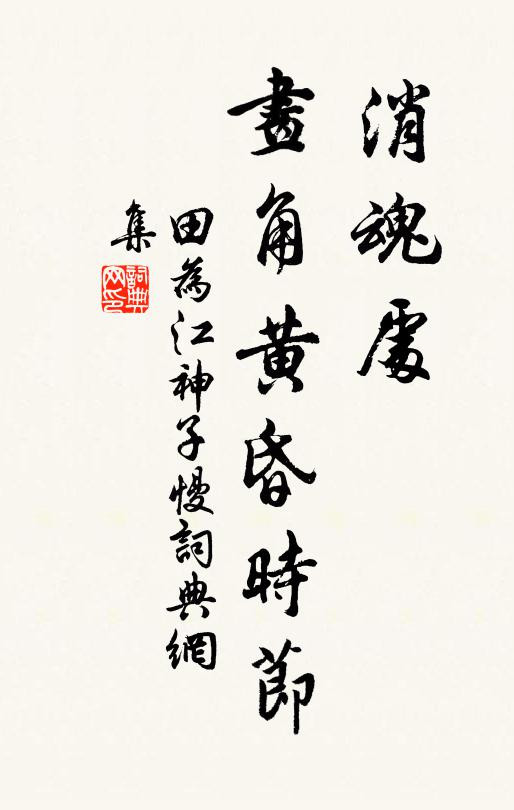 消魂處
畫角黃昏時節
田為江神子慢詞典網
集
詞典
网印